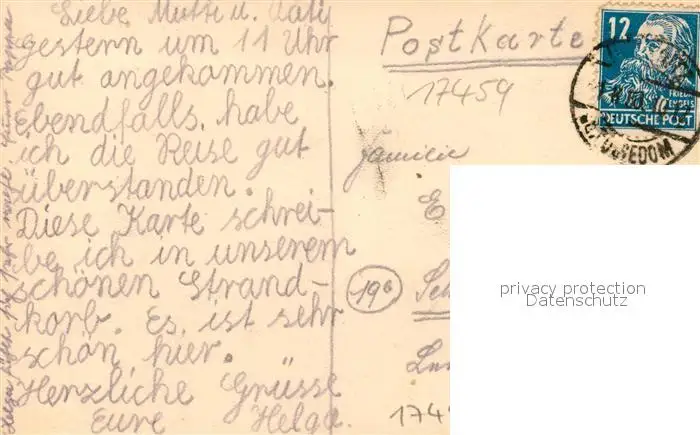 Liebe Mutti u. Vati
gestern um 11 Uhr
gut angekommen.
Ebenfalls habe
ich die Reise gut
überstanden.
Diese Karte schrei-
be ich in unserem
schönen Strand-
korb. Es ist sehr
schön hier.
Herzliche Grüsse
Eure Helga.
Postkarte
17459
Familie
E
19b
Sch
174
12
FRIEDR.
ENGELS
DEUTSCHE POST
USEDOM
privacy protection
Datenschutz